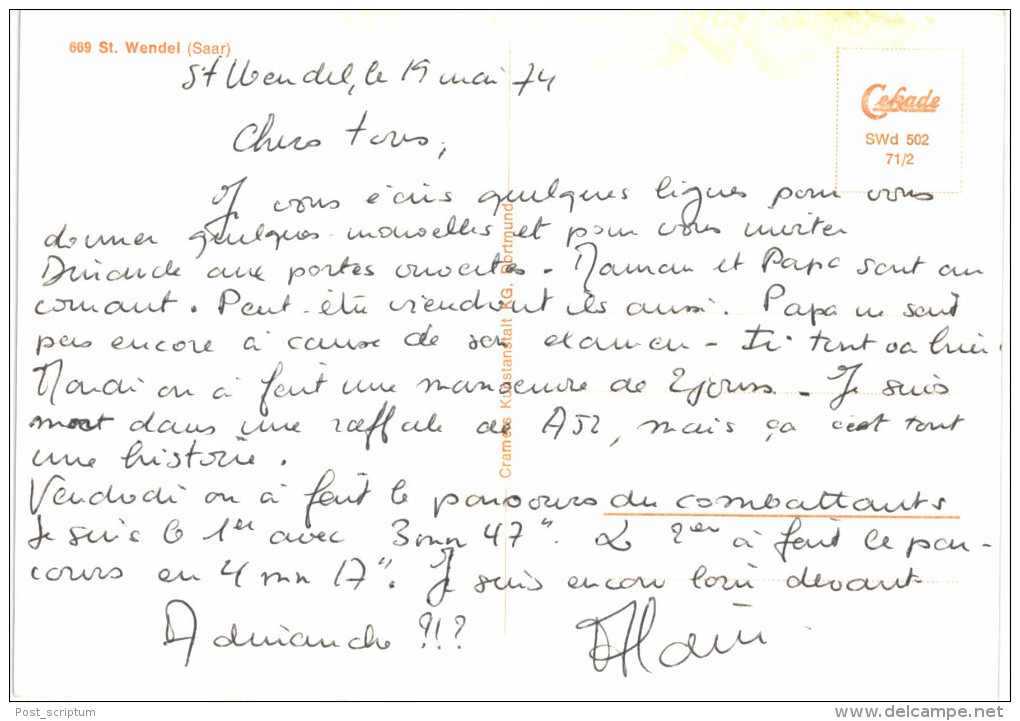 669 St. Wendel (Saar)
St Wendel, le 19 mai 74
Cekade
SWd 502
71/2
Chers tous,
Je vous écris quelques lignes pour vous
donner quelques nouvelles et pour vous inviter
Dimanche aux portes ouvertes. Maman et Papa sont au
courant. Peut-être viendront ils aussi. Papa ne sait
pas encore à cause de son examen - Ici tout va bien.
Mardi on à fait une manoeuvre de 2 jours. Je suis
mort dans une raffale de A52, mais ça c'est tout
une histoire.
Vendredi on à fait le parcours du combattants
Je suis le 1er avec 3mn 47". Le 2er à fait le par-
cours en 4 mn 17". Je suis encore loin devant
A dimanche ?!?
Alain
Cramers Kunstanstalt KG, Dortmund
Post_scriptum
www.delcampe.net